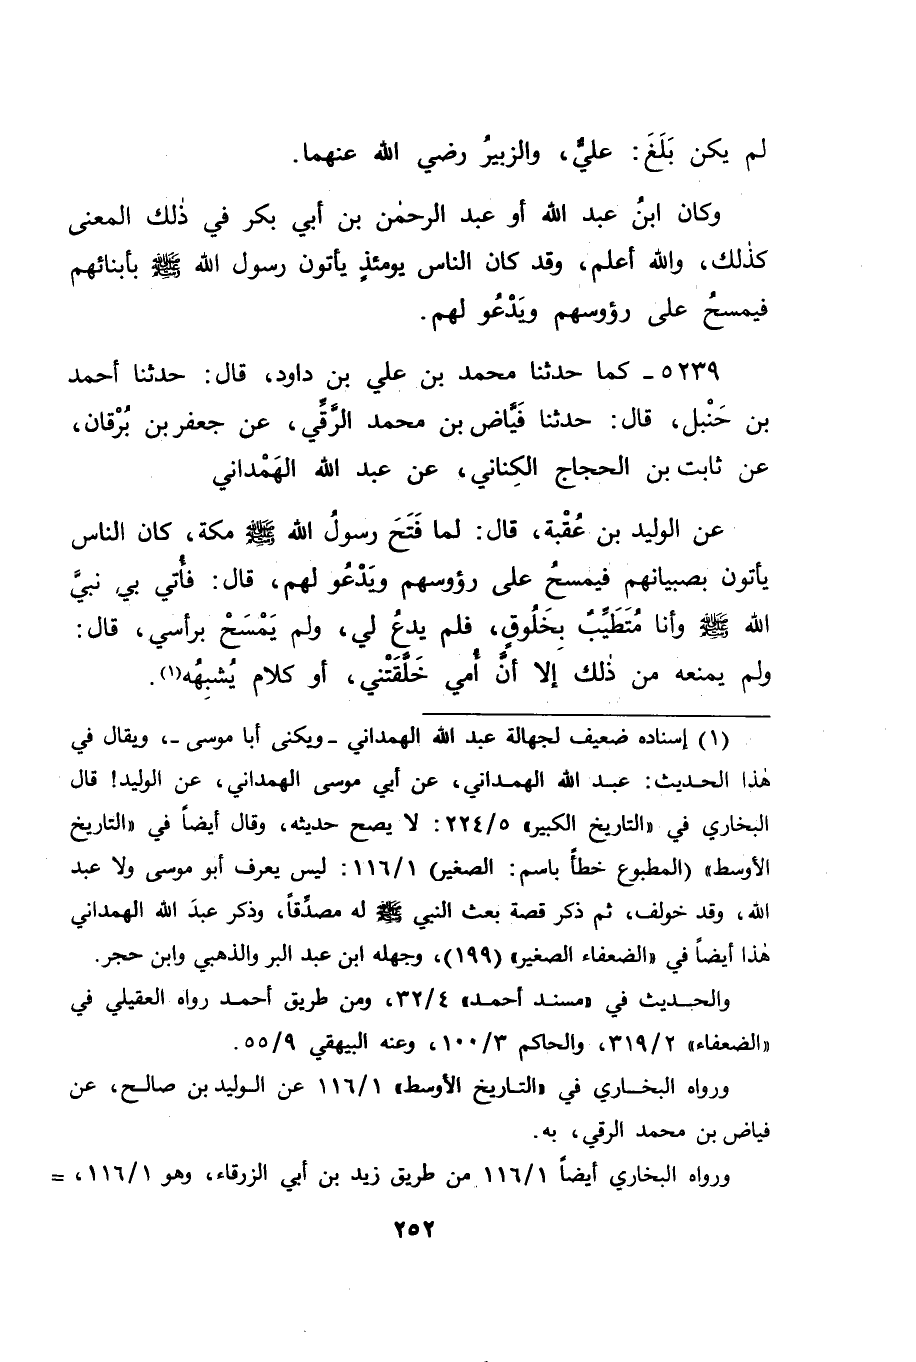 لم يكن بَلَغَ: عليٌّ، والزبيرُ رضي الله عنهما.
وكان ابنُ عبد الله أو عبد الرحمٰن بن أبي بكر في ذٰلك المعنى
كذٰلك، والله أعلم، وقد كان الناس يومئذٍ يأتون رسول الله ﷺ بأبنائهم
فيمسحُ على رؤوسهم ويَدْعُو لهم.
٥٢٣٩ـ كما حدثنا محمد بن علي بن داود، قال: حدثنا أحمد
بن حَنْبل، قال: حدثنا فَيَّاض بن محمد الرَّقِّي، عن جعفر بن بُرْقان،
عن ثابت بن الحجاج الكِناني، عن عبد الله الهَمْداني
عن الوليد بن عُقْبة، قال: لما فَتَحَ رسولُ الله ﷺ مكة، كان الناس
يأتون بصبيانهم فيمسحُ على رؤوسهم ويَدْعُو لهم، قال: فأُتي بي نبيَّ
الله ﷺ وأنا مُتَطَيِّبٌ بِخَلُوقٍ، فلم يدعُ لي، ولم يَمْسَحْ برأسي، قال:
ولم يمنعه من ذٰلك إلا أنَّ أُمي خَلَّقَتْني، أو كلام يُشبِهُه(١).
(١) إسناده ضعيف لجهالة عبد الله الهمداني ـ ويكنى أبا موسى ـ، ويقال في
هٰذا الحديث: عبد الله الهمداني، عن أبي موسى الهمداني، عن الوليد! قال
البخاري في «التاريخ الكبير» ٢٢٤/٥: لا يصح حديثه، وقال أيضاً في «التاريخ
الأوسط» (المطبوع خطأً باسم: الصغير) ١١٦/١: ليس يعرف أبو موسى ولا عبد
الله، وقد خولف، ثم ذكر قصة بعث النبي ﷺ له مصدِّقاً، وذكر عبدَ الله الهمداني
هٰذا أيضاً في «الضعفاء الصغير» (١٩٩)، وجهله ابن عبد البر والذهبي وابن حجر.
والحديث في «مسند أحمد» ٣٢/٤، ومن طريق أحمد رواه العقيلي في
«الضعفاء» ٣١٩/٢، والحاكم ١٠٠/٣، وعنه البيهقي ٥٥/٩.
ورواه البخاري في «التاريخ الأوسط» ١١٦/١ عن الوليد بن صالح، عن
فياض بن محمد الرقي، به.
ورواه البخاري أيضاً ١١٦/١ من طريق زيد بن أبي الزرقاء، وهو ١١٦/١، =
٢٥٢